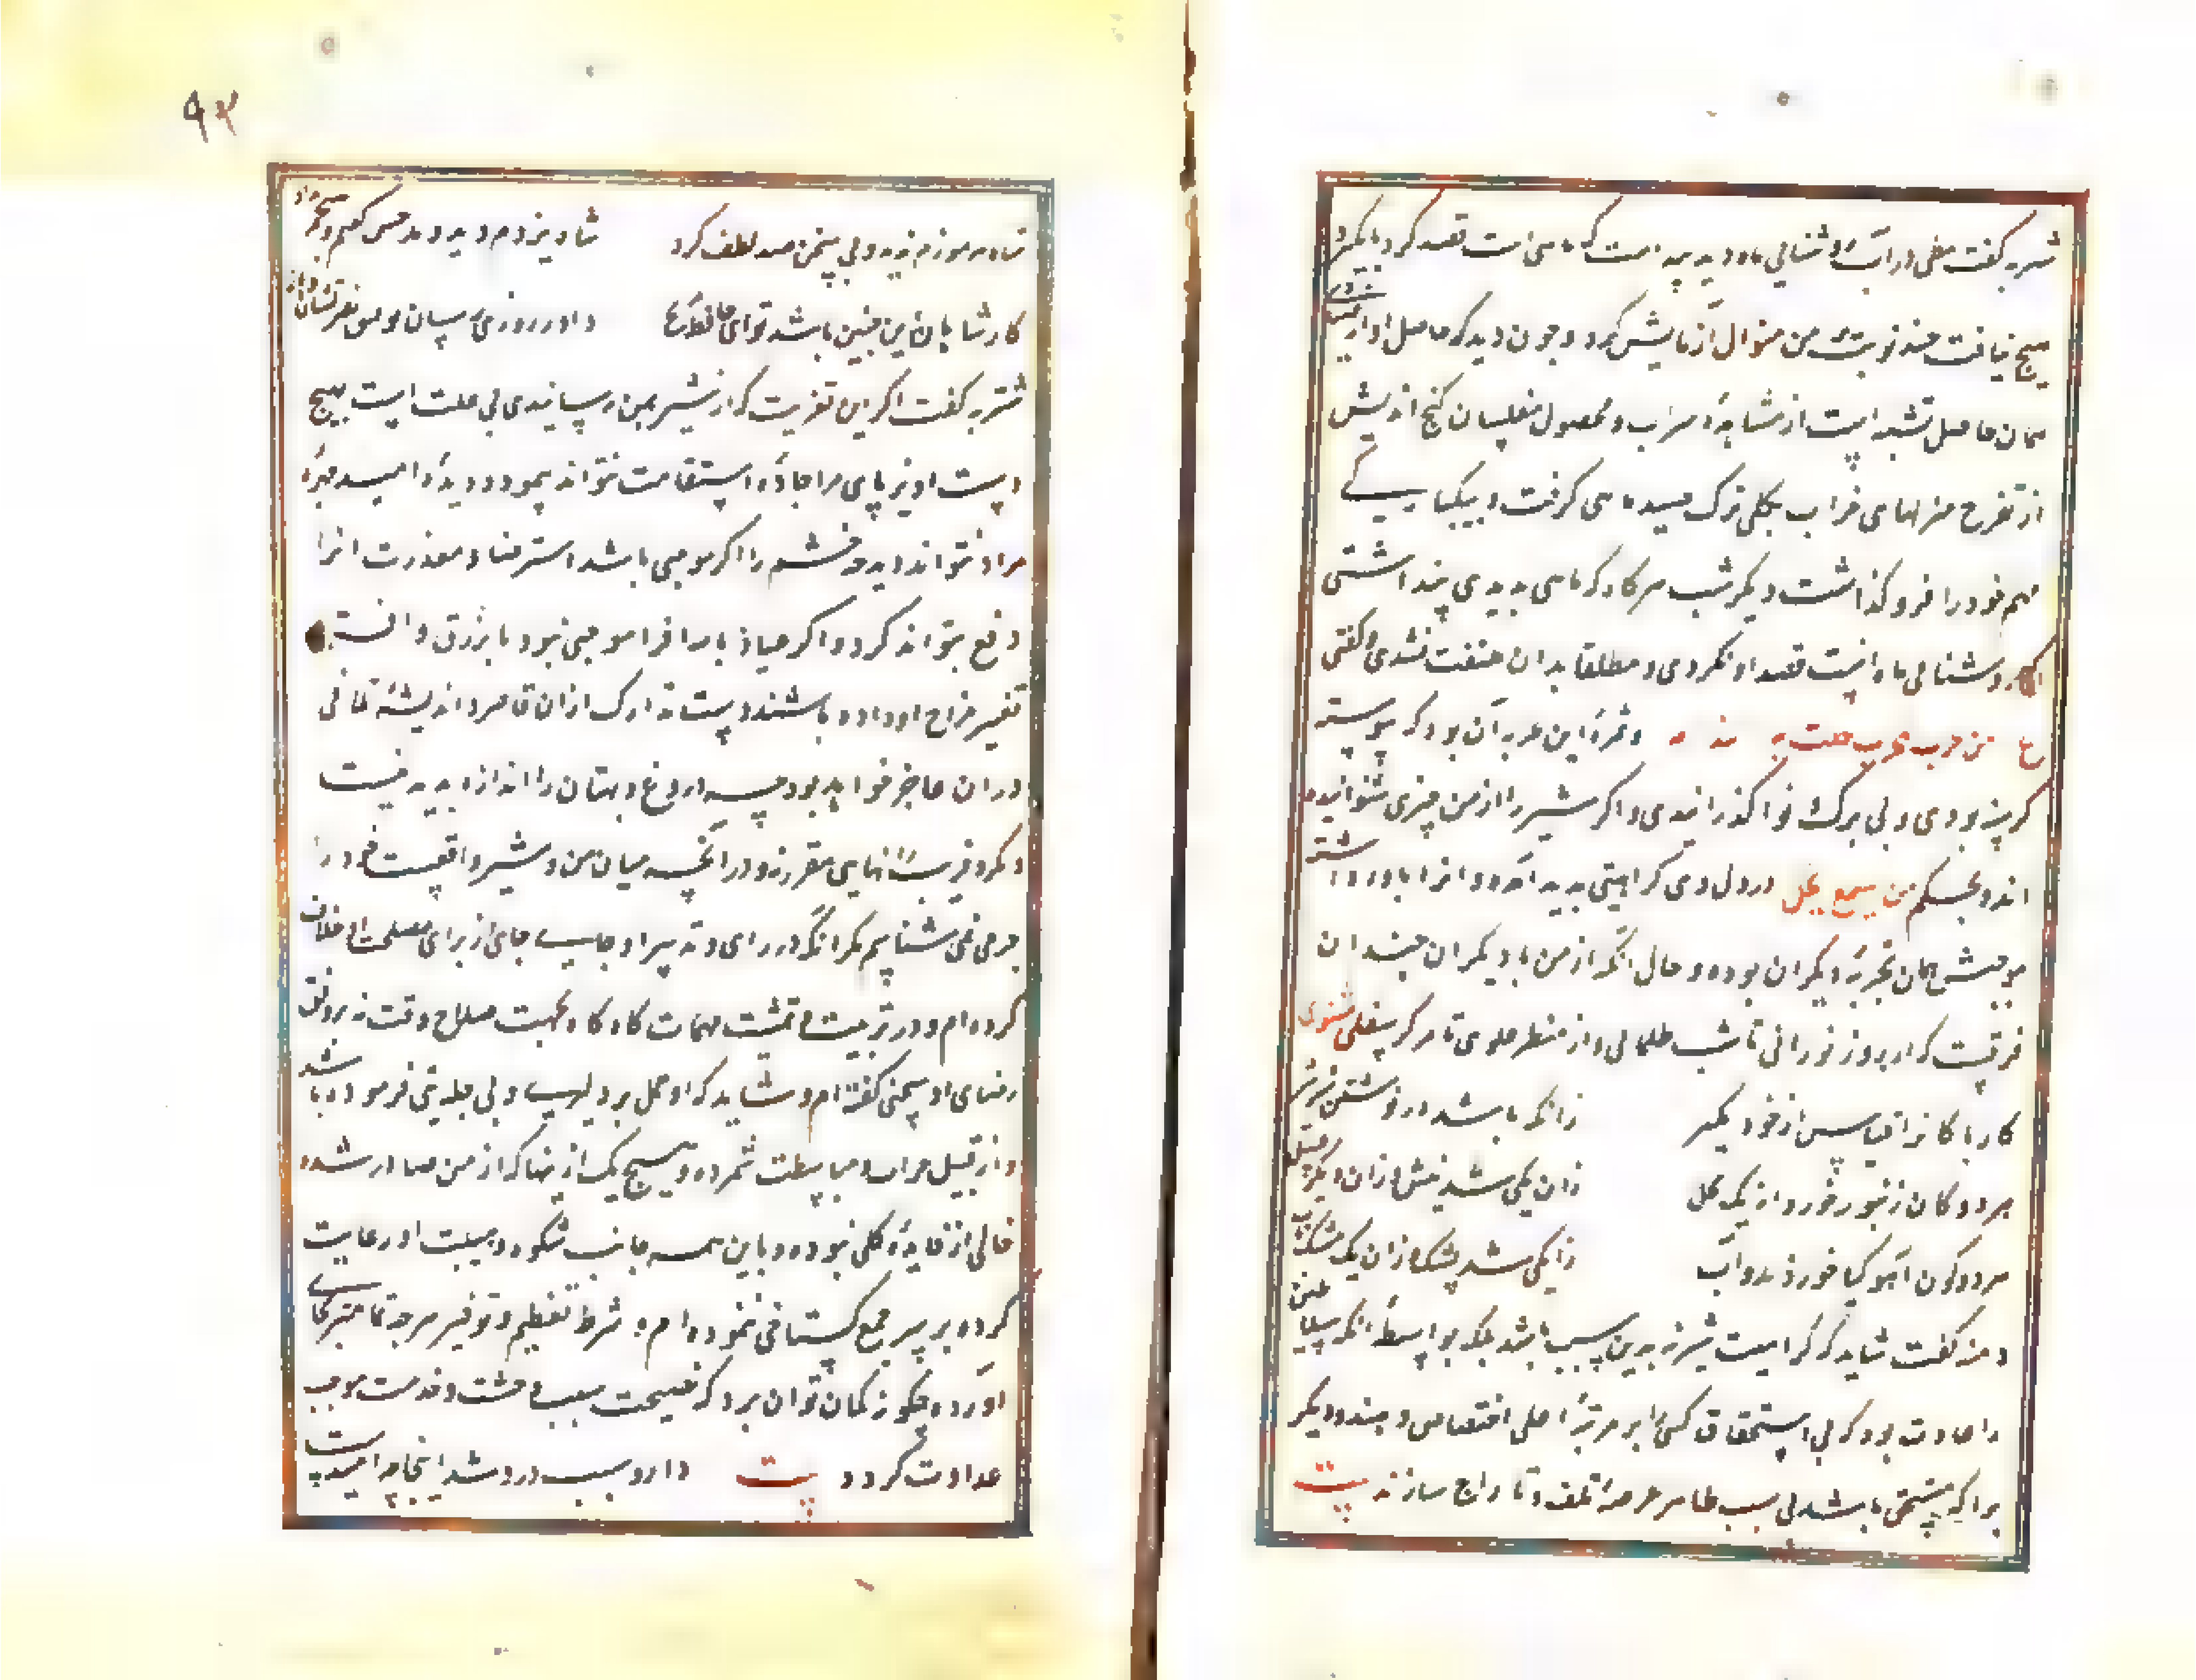 شتربه گفت بطی در آب روشنائی ماه دید پنداشت که ماهی است قصد کرد تا بگیرد
هیچ نیافت چند نوبت برین منوال آزمایش کرد و چون دید که حاصل او از
همان حاصل تشنه است از مشاهدهٔ سراب و محصول مفلسان کنج اندیش
از تفرج منزلهای خراب بکلی ترک صید ماهی گرفت و بیکبارگی
مهم خود را فرو گذاشت دیگر شب هرگاه که ماهی بدیدی پنداشتی
که روشنائی ماه است قصد او نکردی و مطلقا بدان ملتفت نشدی و گفتی
ع من جرب المجرب حلت به الندامه و ثمرهٔ این تجربه آن بود که پیوسته
گرسنه بودی و بی برگ و نوا گذرانیدی و اگر شیر را از من چیزی شنوانیده
اند و بحکم من یسمع یخل در دل وی کراهیتی پدید آمده و انرا باور داشته
موجبش همان تجربهٔ دیگران بوده و حال آنکه از من تا دیگران چندان
فرقیست که از روز نورانی تا شب ظلمانی و از منظر علوی تا مرکز سفلی مثنوی
کار پاکانرا قیاس از خود مگیر زانکه باشد در نوشتن شیر شیر
هر دو گون زنبور خورد از یک محل زان یکی شد نیش و زان دیگر عسل
هر دو گون آهو گیا خوردند و آب زان یکی شد پشک و زان یک مشک ناب
دمنه گفت شاید که کراهیت شیر نه بدین سبب باشد بلکه بواسطهٔ آنکه سلاطین
را عادت بود که بی استحقاق کسی را بر مرتبهٔ اعلی اختصاص دهند و دیگر
برا که مستحق باشد بی سبب ظاهر عرضهٔ تلف و تاراج سازند بیت
شاه هرموزم ندید و بی سخن صد لطف کرد شاه یزدم دید و مدحش گفتم و هیچم نداد
کار شاهان این چنین باشد تو ای حافظ مرنج داور روزی رسان توفیق و نصرتشان دهاد
شتربه گفت اگر این نفرت که از شیر بمن رسانیدی بی علت است هیچ
دست آویز پای مرا جادهٔ استقامت نتواند پیمود و دیدهٔ امید چهرهٔ
مراد نتواند دید چه خشم را اگر موجبی باشد استرضا و معذرت انرا
دفع بتواند کرد و اگر عیاذا بالله انرا موجبی نبود یا بزرق و افترا
تغییر مزاج او داده باشند دست تدارک ازان قاصر و اندیشهٔ تلافی
دران عاجز خواهد بود چه دروغ و بهتان را اندازه پدید نیست
و مکر و فریب را نهایتی مقرر نه و در آنچه میان من و شیر واقعست خود را
جرمی نمی شناسم مگر آنکه در رای و تدبیر او جای جای از برای مصلحت او خلاف
کرده ام و در تربیت و تمشیت مهمات گاه گاه بجهت صلاح وقت نه بر وفق
رضای او سخنی گفته ام و شاید که او حمل بر دلیری و بی حیائی فرموده باشد
و از قبیل جرات و مباسطت شمرده و هیچ یک از ینها که از من صادر شده
خالی از فایدهٔ کلی نبوده و با این همه جانب شکوه و هیبت او رعایت
کرده بر سر جمع گستاخی ننموده ام و شرط تعظیم و توقیر هر چه تمامتر بجای
آورده و چگونه گمان توان برد که نصیحت سبب وحشت و خدمت موجب
عداوت گردد بیت دارو سبب درد شد اینجا چه امیدست
۹۲